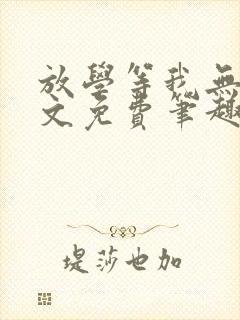 放學等我無
文免費筆趣
堤莎也加